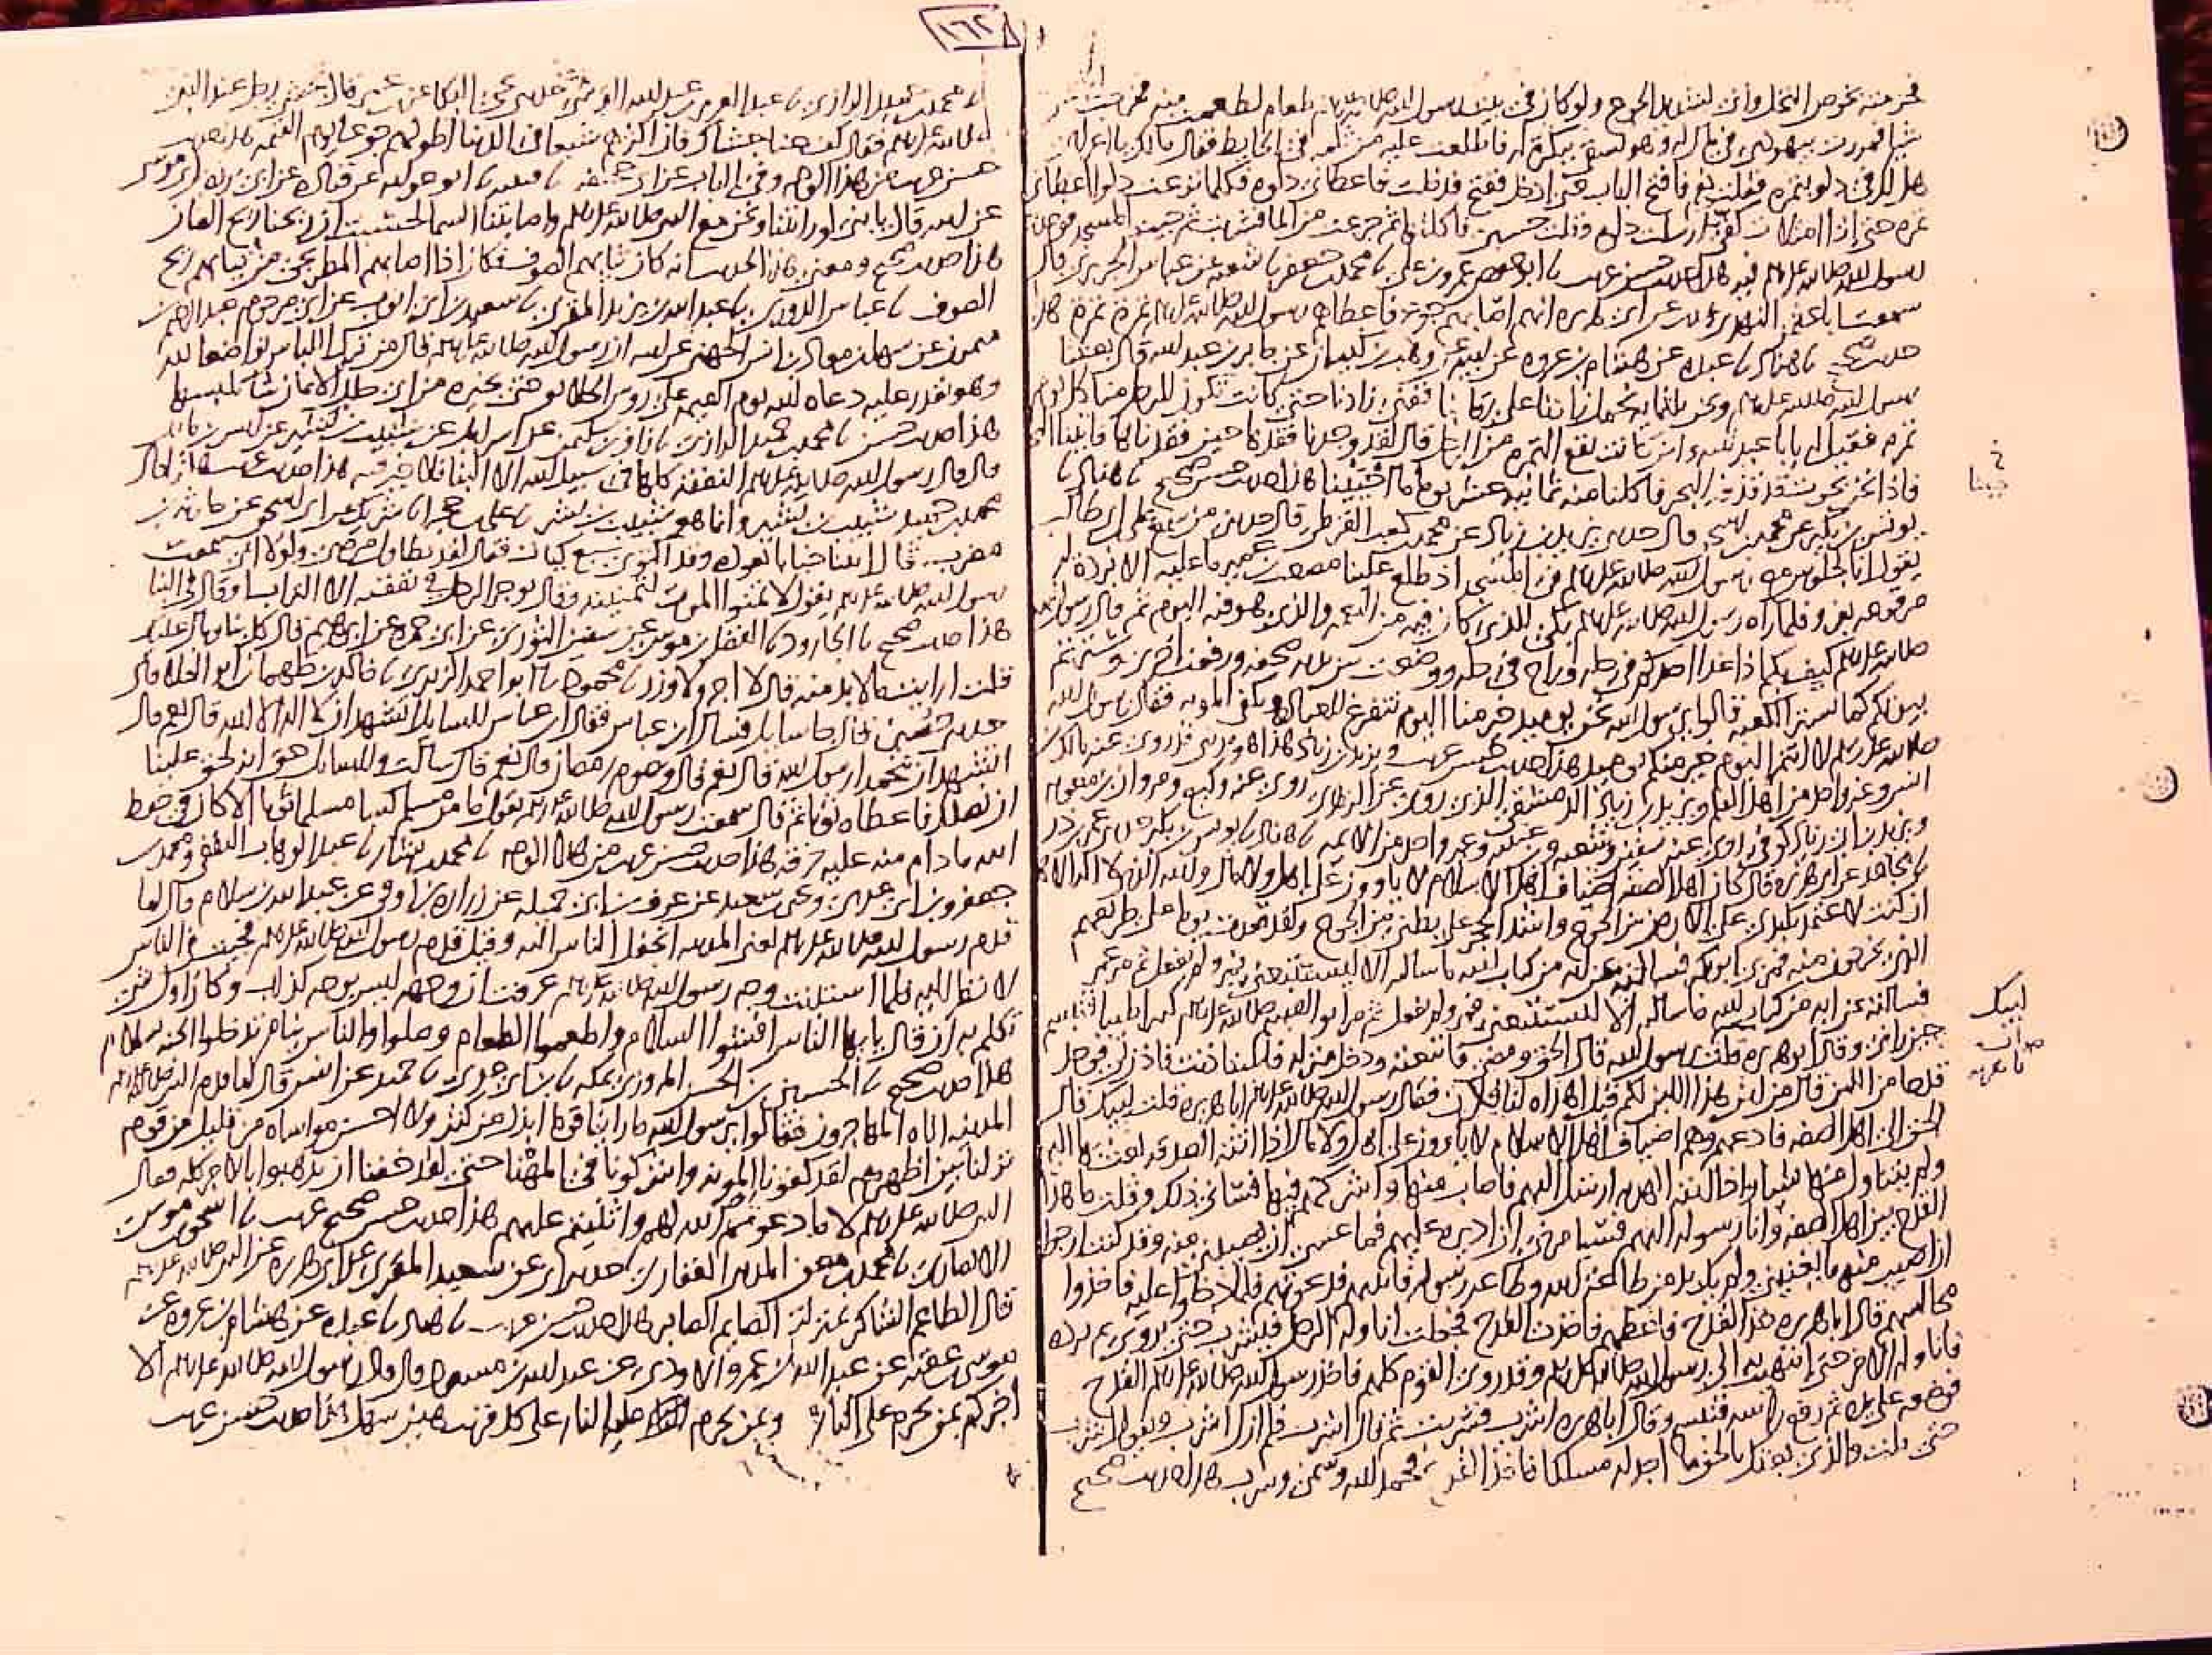 فحزمته بخوص النخل وإني لشديد الجوع ولو كان في بيت رسول الله صلى الله عليه طعام لطعمت منه فخرجت
شيا فمررت بيهودي في مال له وهو يسقي ببكرة له فاطلعت عليه من ثلمة في الحايط فقال مالك يا اعرابي
هل لك في دلو بتمرة فقلت نعم فافتح الباب حتى ادخل ففتح فدخلت فاعطاني دلوه فكلما نزعت دلوا اعطاني
تمرة حتى إذا امتلات كفي ارسلت دلوه وقلت حسبي فاكلتها ثم جرعت من الما فشربت ثم جيت المسجد فوجدت
رسول الله صلى الله عليه وسلم فيه هذا حديث حسن غريب نا ابو حفص عمرو بن علي نا محمد بن جعفر نا شعبه عن عباس الجريري قال
سمعت ابا عثمن النهدي يحدث عن ابي هريره انهم اصابهم جوع فاعطاهم رسول الله صلى الله عليه وسلم تمرة تمرة هذا
حديث صحيح نا هناد نا عبده عن هشام بن عروه عن ابيه عن وهب بن كيسان عن جابر بن عبد الله قال بعثنا
رسول الله صلى الله عليه وسلم ونحن ثلثمايه نحمل زادنا على رقابنا ففني زادنا حتى كانت تكون للرجل منا كل يوم
تمرة فقيل له يا ابا عبد الله واين كانت تقع التمره من الرجل قال لقد وجدنا فقدها حين فقدناها فاتينا البحر
فاذا نحن بحوت قد قذفه البحر فاكلنا منه ثمانيه عشر يوما ما احببنا هذا حديث صحيح نا هناد نا
يونس بن بكير عن محمد بن اسحق قال حدثني يزيد بن زياد عن محمد بن كعب القرظي قال حدثني من سمع علي بن ابي طالب
يقول انا لجلوس مع رسول الله صلى الله عليه وسلم في المسجد اذ طلع علينا مصعب بن عمير ما عليه الا بردة له
مرقوعه بفرو فلما راه رسول الله صلى الله عليه وسلم بكى للذي كان فيه من النعمه والذي هو فيه اليوم ثم قال رسول الله
صلى الله عليه وسلم كيف بكم اذا غدا احدكم في حله وراح في حله ووضعت بين يديه صحفه ورفعت اخرى وسترتم
بيوتكم كما تستر الكعبه قالوا يا رسول الله نحن يوميذ خير منا اليوم نتفرغ للعباده ونكفى المونه فقال رسول الله
صلى الله عليه وسلم لا انتم اليوم خير منكم يوميذ هذا حديث حسن غريب ويزيد بن زياد هذا هو مديني قد روى عنه مالك بن
انس وغير واحد من اهل العلم ويزيد بن زياد الدمشقي الذي روى عن الزهري روى عنه وكيع ومروان بن معويه
ويزيد بن ابي زياد كوفي روى عنه سفين وشعبه وابن عيينه وغير واحد من الايمه نا هناد نا يونس بن بكير حدثني عمر بن ذر
نا مجاهد عن ابي هريره قال كان اهل الصفه اضياف اهل الاسلام لا ياوون على اهل ولا مال والله الذي لا اله الا هو
ان كنت لاعتمد بكبدي على الارض من الجوع واشد الحجر على بطني من الجوع ولقد قعدت يوما على طريقهم
الذي يخرجون منه فمر بي ابو بكر فسالته عن ايه من كتاب الله ما ساله الا ليستتبعني فمر ولم يفعل ثم مر عمر
فسالته عن ايه من كتاب الله ما ساله الا ليستتبعني فمر ولم يفعل ثم مر ابو القسم صلى الله عليه وسلم فتبسم
حين راني وقال ابو هريره قلت لبيك رسول الله قال الحق ومضى فاتبعته ودخل منزله فاستاذنت فاذن لي فوجد
قدحا من اللبن قال من اين هذا اللبن لكم قيل اهداه لنا فلان فقال رسول الله صلى الله عليه وسلم ابا هريره قلت لبيك قال
الحق الى اهل الصفه فادعهم وهم اضياف اهل الاسلام لا ياوون على اهل ولا مال اذا اتته الصدقه بعث بها اليهم
ولم يتناول منها شيا واذا اتته الهديه ارسل اليهم فاصاب منها واشركهم فيها فساني ذلك وقلت ما هذا
القدح بين اهل الصفه وانا رسوله اليهم فسيامرني ان اديره عليهم فما عسى ان يصيبني منه وقد كنت ارجوا
ان اصيب منه ما يغنيني ولم يك بد من طاعة الله وطاعة رسوله فاتيتهم فدعوتهم فلما دخلوا عليه فاخذوا
مجالسهم قال ابا هريره خذ القدح فاعطهم فاخذت القدح فجعلت اناوله الرجل فيشرب حتى يروى ثم يرده
فاناوله الاخر حتى انتهيت به الى رسول الله صلى الله عليه وسلم وقد روى القوم كلهم فاخذ رسول الله صلى الله عليه وسلم القدح
فوضعه على يده ثم رفع راسه فتبسم وقال ابا هريره اشرب فشربت ثم قال اشرب فلم ازل اشرب ويقول اشرب
حتى قلت والذي بعثك بالحق ما اجد له مسلكا فاخذ القدح فحمد الله وسمى وشرب هذا حديث صحيح
لبيك
١٦٢
نا محمد بن حميد الرازي نا عبد العزيز بن عبد الله القرشي حدثني يحيى البكا عن ابن عمر قال تجشى رجل عند النبي
صلى الله عليه وسلم فقال كف عنا جشاك فان اكثرهم شبعا في الدنيا اطولهم جوعا يوم القيمه هذا حديث
حسن غريب من هذا الوجه وفي الباب عن ابي جحيفه نا قتيبه نا ابو عوانه عن قتاده عن ابي برده بن ابي موسى
عن ابيه قال يا بني لو رايتنا ونحن مع النبي صلى الله عليه وسلم واصابتنا السما لحسبت ان ريحنا ريح الضان
هذا حديث صحيح ومعنى هذا الحديث انه كان ثيابهم الصوف فكان اذا اصابهم المطر يجي من ثيابهم ريح
الصوف نا عباس الدوري نا عبد الله بن يزيد المقري نا سعيد بن ابي ايوب عن ابي مرحوم عبد الرحيم بن
ميمون عن سهل بن معاذ بن انس الجهني عن ابيه ان رسول الله صلى الله عليه وسلم قال من ترك اللباس تواضعا لله
وهو يقدر عليه دعاه الله يوم القيمه على روس الخلايق حتى يخيره من اي حلل الايمان شا يلبسها
هذا حديث حسن نا محمد بن حميد الرازي نا زافر بن سليمن عن اسرايل عن شبيب بن بشير عن انس بن مالك
قال قال رسول الله صلى الله عليه وسلم النفقه كلها في سبيل الله الا البنا فلا خير فيه هذا حديث غريب هكذا قال
محمد بن حميد شبيب بن بشير وانما هو شبيب بن بشر نا علي بن حجر نا شريك عن ابي اسحق عن حارثه بن
مضرب قال اتينا خبابا نعوده وقد اكتوى سبع كيات فقال لقد تطاول مرضي ولولا اني سمعت
رسول الله صلى الله عليه وسلم يقول لا تمنوا الموت لتمنيته وقال يوجر الرجل في نفقته الا التراب او قال في البنا
هذا حديث صحيح نا الجارود نا الفضل بن موسى عن سفين الثوري عن ابي حمزه عن ابرهيم قال كل بنا وبال عليك
قلت ارايت ما لا بد منه قال لا اجر ولا وزر نا محمود نا ابو احمد الزبيري نا خالد بن طهمان ابو العلا قال
حدثني حصين قال جا سايل فسال ابن عباس فقال ابن عباس للسايل اتشهد ان لا اله الا الله قال نعم قال
اتشهد ان محمدا رسول الله قال نعم قال وتصوم رمضان قال نعم قال سالت وللسايل حق انه لحق علينا
ان نصلك فاعطاه ثوبا ثم قال سمعت رسول الله صلى الله عليه وسلم يقول ما من مسلم كسا مسلما ثوبا الا كان في حفظ
الله ما دام منه عليه خرقه هذا حديث حسن غريب من هذا الوجه نا محمد بن بشار نا عبد الوهاب الثقفي ومحمد بن
جعفر وابن ابي عدي ويحيى بن سعيد عن عوف بن ابي جميله عن زراره بن اوفى عن عبد الله بن سلام قال لما
قدم رسول الله صلى الله عليه وسلم يعني المدينه انجفل الناس اليه وقيل قدم رسول الله صلى الله عليه وسلم فجيت في الناس
لانظر اليه فلما استبنت وجه رسول الله صلى الله عليه وسلم عرفت ان وجهه ليس بوجه كذاب وكان اول شي
تكلم به ان قال يا ايها الناس افشوا السلام واطعموا الطعام وصلوا والناس نيام تدخلوا الجنه بسلام
هذا حديث صحيح نا الحسين بن الحسن المروزي بمكه نا ابن ابي عدي نا حميد عن انس قال لما قدم النبي صلى الله عليه وسلم
المدينه اتاه المهاجرون فقالوا يا رسول الله ما راينا قوما ابذل من كثير ولا احسن مواساه من قليل من قوم
نزلنا بين اظهرهم لقد كفونا المونه واشركونا في المهنا حتى لقد خفنا ان يذهبوا بالاجر كله فقال
النبي صلى الله عليه وسلم لا ما دعوتم الله لهم واثنيتم عليهم هذا حديث حسن صحيح غريب نا اسحق بن موسى
الانصاري نا محمد بن معن المديني الغفاري حدثني ابي عن سعيد المقبري عن ابي هريره عن النبي صلى الله عليه وسلم
قال الطاعم الشاكر بمنزلة الصايم الصابر هذا حديث حسن غريب نا هناد نا عبده عن هشام بن عروه عن
موسى بن عقبه عن عبد الله بن عمرو الاودي عن عبد الله بن مسعود قال قال رسول الله صلى الله عليه وسلم الا
اخبركم بمن يحرم على النار وبمن تحرم عليه النار على كل قريب هين سهل هذا حديث حسن غريب